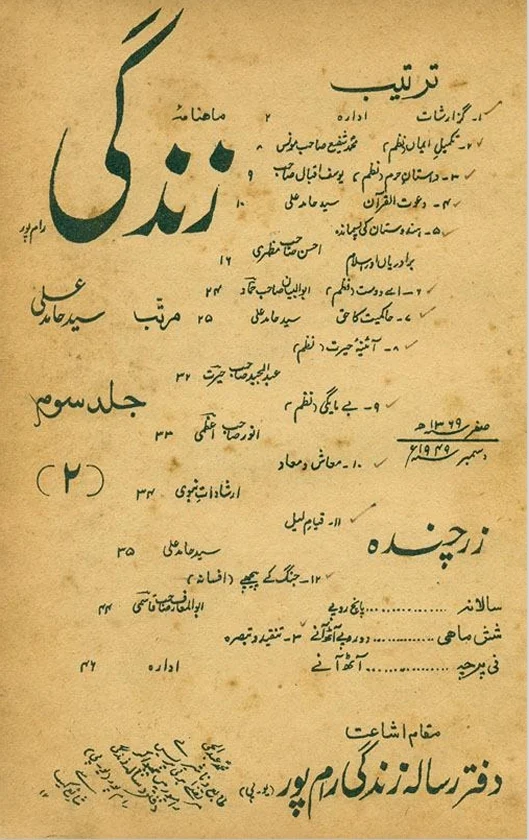 ترتیب
ماہنامہ
زندگی
رام پور
۱۔ گزارشات ادارہ ۲
۲۔ تکمیل ایماں (نظم) محمد شفیع صاحب مونس ۸
۳۔ داستانِ حرم (نظم) یوسف اقبال صاحب ۹
۴۔ دعوت القرآن سید حامد علی ۱۰
۵۔ ہندوستان کی پسماندہ
برادریاں اور اسلام احسن صاحب مظہری ۱۶
۶۔ اے دوست (نظم) ابوالبیان صاحب حماد ۲۴
۷۔ حاکمیت کا حق سید حامد علی ۲۵
۸۔ آئینۂ حیرت (نظم)
عبدالمجید صاحب حیرت ۳۲
۹۔ بے مایگی (نظم)
انور صاحب اعظمی ۳۳
۱۰۔ معاش و معاد
ارشاداتِ نبوی ۳۴
۱۱۔ قیامِ لیل
سید حامد علی ۳۵
۱۲۔ جنگ کے پیچھے (افسانہ)
ابوالمعارف صاحب قاسمی ۴۴
۳۔ تنقید و تبصرہ
ادارہ ۴۶
مرتّب سید حامد علی
جلد سوم
(۲)
صفر ۱۳۶۹ھ
دسمبر ۱۹۴۹ء
زرِ چندہ
سالانہ .............. پانچ روپے
شش ماہی ............ دو روپے آٹھ آنے
فی پرچہ .............. آٹھ آنے
مقام اشاعت
دفتر رسالہ زندگی رام پور (یو۔پی)